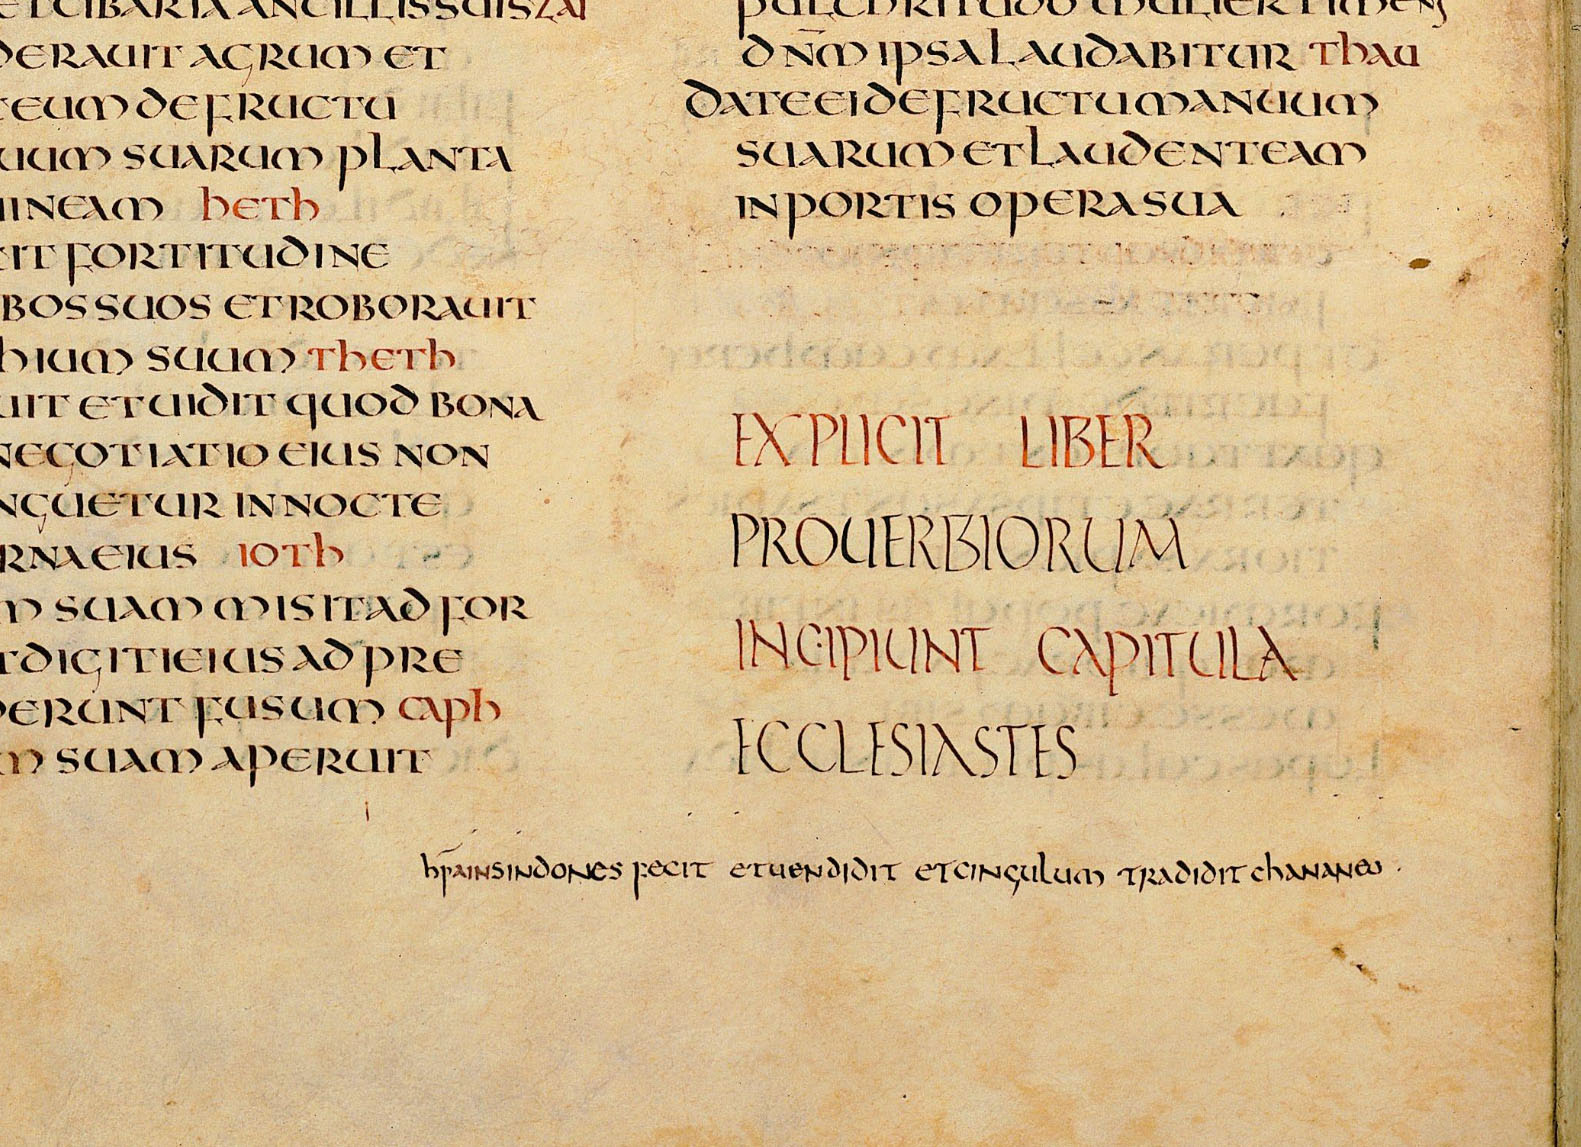 ET CIBARIA ANCILLIS SUIS ZAI
DERAUIT AGRUM ET
EUM DE FRUCTU
UUM SUARUM PLANTA
INEAM heth
IT FORTITUDINE
BOS SUOS ET ROBORAUIT
hIUM SUUM theth
UIT ET UIDIT QUOD BONA
NEGOTIATIO EIUS NON
NGUETUR IN NOCTE
RNA EIUS ioth
M SUAM MISIT AD FOR
T DIGITI EIUS AD PRE
ERUNT FUSUM caph
M SUAM APERUIT
PULCHRITUDO MULIER TIMENS
DN̄M IPSA LAUDABITUR thau
DATE EI DE FRUCTU MANUUM
SUARUM ET LAUDENT EAM
IN PORTIS OPERA SUA
EXPLICIT LIBER
PROUERBIORUM
INCIPIUNT CAPITULA
ECCLESIASTES
sindones fecit et uendidit et cingulum tradidit chananeo